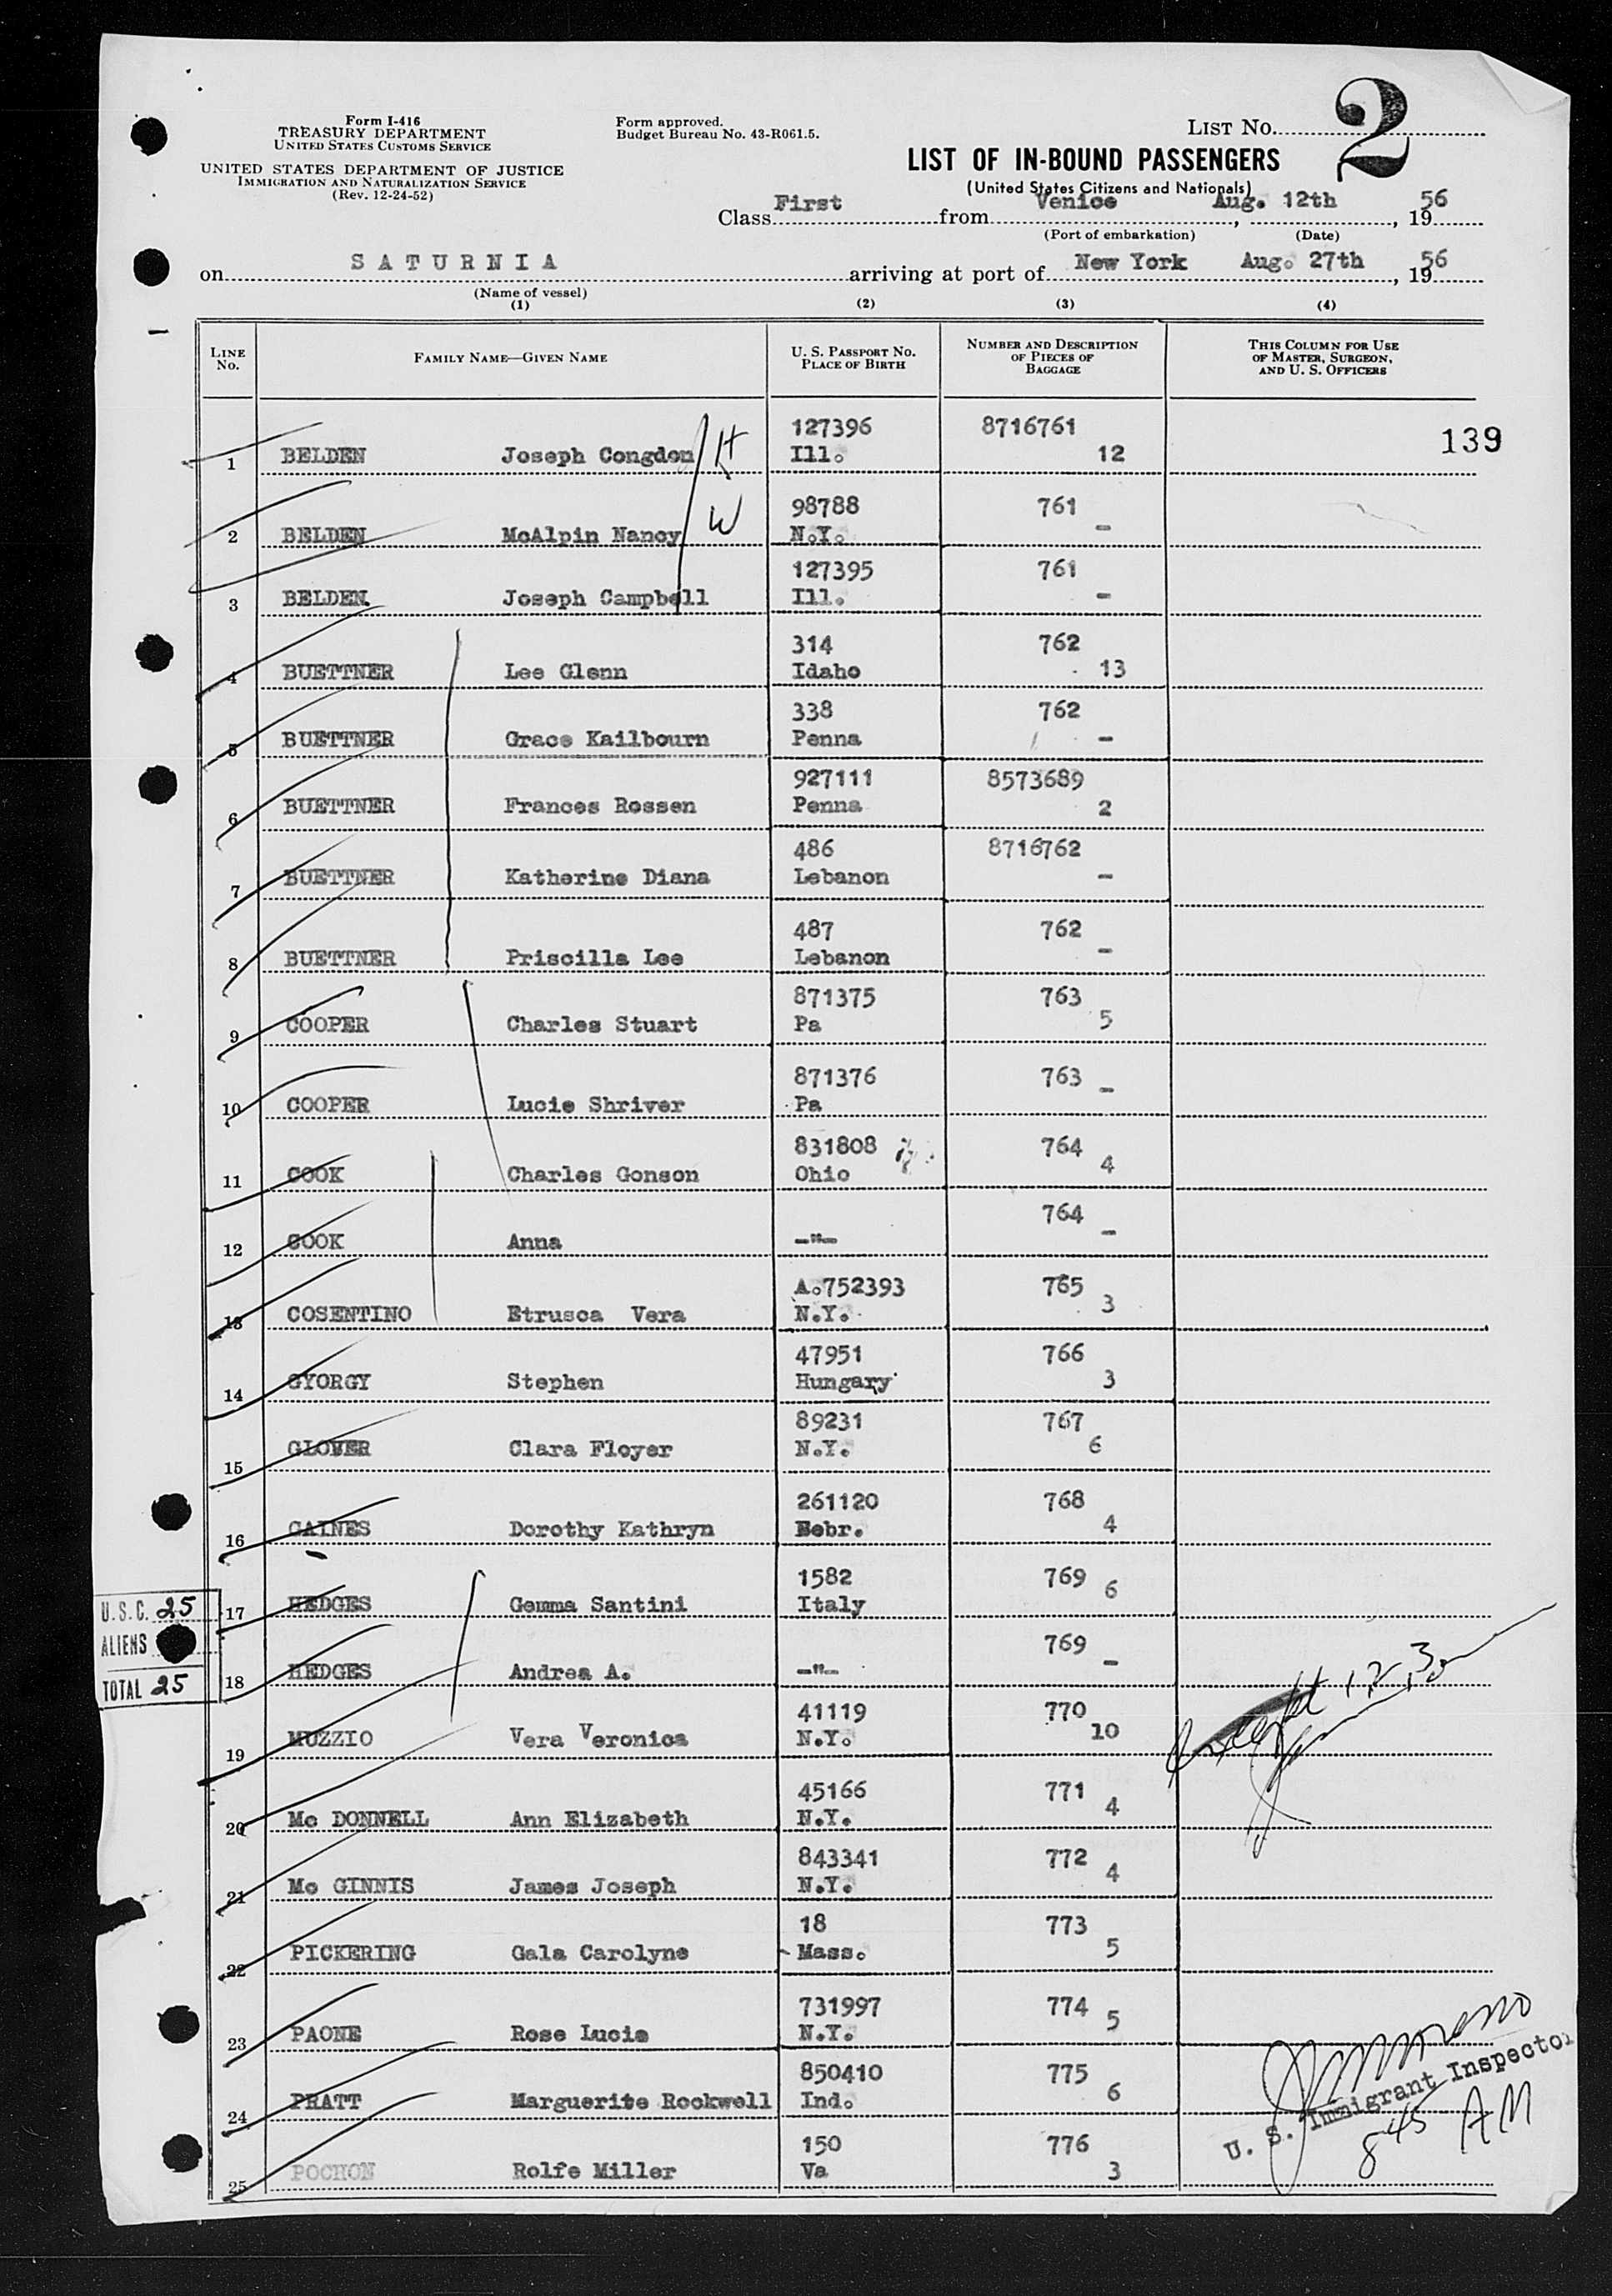 Form I-416
TREASURY DEPARTMENT
UNITED STATES CUSTOMS SERVICE
UNITED STATES DEPARTMENT OF JUSTICE
IMMIGRATION AND NATURALIZATION SERVICE
(Rev. 12-24-52)
Form approved.
Budget Bureau No. 43-R061.5.
LIST NO. 2
LIST OF IN-BOUND PASSENGERS
(United States Citizens and Nationals)
Class First from Venice, Aug. 12th, 1956
(Port of embarkation) (Date)
on SATURNIA arriving at port of New York Aug. 27th, 1956
(Name of vessel)
(1) (2) (3) (4)
LINE No. FAMILY NAME—GIVEN NAME U. S. PASSPORT NO. PLACE OF BIRTH NUMBER AND DESCRIPTION OF PIECES OF BAGGAGE THIS COLUMN FOR USE OF MASTER, SURGEON, AND U. S. OFFICERS
139
127396 8716761
1 BELDEN Joseph Congdon H Ill. 12
98788 761
2 BELDEN McAlpin Nancy W N.Y. -
127395 761
3 BELDEN Joseph Campbell Ill. -
314 762
4 BUETTNER Lee Glenn Idaho 13
338 762
5 BUETTNER Grace Kailbourn Penna -
927111 8573689
6 BUETTNER Frances Rossen Penna 2
486 8716762
7 BUETTNER Katherine Diana Lebanon -
487 762
8 BUETTNER Priscilla Lee Lebanon -
871375 763
9 COOPER Charles Stuart Pa 5
871376 763
10 COOPER Lucie Shriver Pa -
831808 764
11 COOK Charles Gonson Ohio 4
764
12 COOK Anna -"- -
A.752393 765
13 COSENTINO Etrusca Vera N.Y. 3
47951 766
14 GYORGY Stephen Hungary 3
89231 767
15 GLOVER Clara Floyer N.Y. 6
261120 768
16 GAINES Dorothy Kathryn Nebr. 4
1582 769
17 HEDGES Gemma Santini Italy 6
769
18 HEDGES Andrea A. -"- -
41119 770
19 MUZZIO Vera Veronica N.Y. 10
45166 771
20 Mc DONNELL Ann Elizabeth N.Y. 4
843341 772
21 Mc GINNIS James Joseph N.Y. 4
18 773
22 PICKERING Gala Carolyne Mass. 5
731997 774
23 PAONE Rose Lucia N.Y. 5
850410 775
24 PRATT Marguerite Rockwell Ind. 6
150 776
25 POCHON Rolfe Miller Va 3
U.S.C. 25
ALIENS
TOTAL 25
1, 2, 3
U. S. Immigrant Inspector
8 45 AM